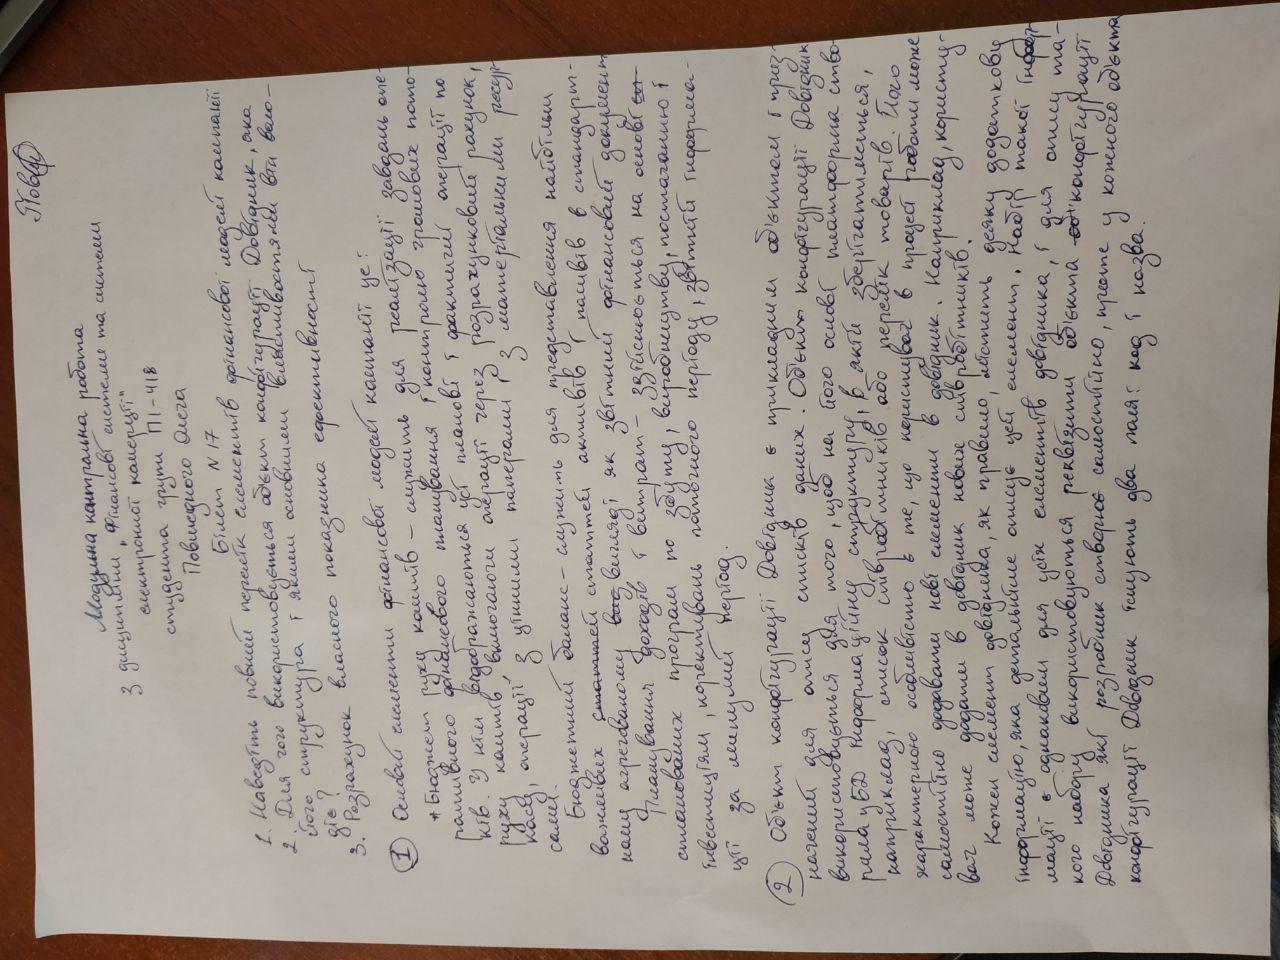 Модульна контрольна робота
З дисципліни "Фінансові системи та системи
електронної комерції"
студента групи ПІ-418
Повшедного Олега
Білет N 17
1. Наведіть повний перелік елементів фінансової моделі компанії
2. Для чого використовується об'єкт конфігурації Довідник, яка
його структура і якими основними властивостями він воло-
діє?
3. Розрахунок власного показника ефективності
① Основні елементи фінансової моделі компанії це:
* Бюджет руху коштів – служить для реалізації завдань опе-
ративного фінансового планування і контролю грошових пото-
ків. У нім відображаються усі планові і фактичні операції по
руху коштів, включаючи операції через розрахунковий рахунок,
касу, операції з цінними паперами і з матеріальними ресур-
сами.
Бюджетний баланс – служить для представлення найбільш
важливих статтей активів і пасивів в стандарт-
ному агрегованому вигляді як звітний фінансовий документ
Планування доходів і витрат – здійснюється на основі
спланованих програм по збуту, виробництву, постачанню і
інвестиціям, коректувань поточного періоду, звітній інформа-
ції за минулий період.
② Об'єкт конфігурації Довідник є прикладним об'єктом і приз-
начений для опису списків даних. Об'єкт конфігурації Довідник
використовується для того, щоб на його основі платформа ство-
рила у БД інформаційну структуру, в якій зберігатиметься,
наприклад, список співробітників або перелік товарів. Його
характерною особливістю є те, що користувач в процесі роботи може
самостійно додавати нові елементи в довідник. Наприклад, користу-
вач може додати в довідник нових співробітників.
Кожен елемент довідника, як правило, містить деяку додаткову
інформацію, яка детальніше описує цей елемент. Набір такої інфор-
мації є однаковим для усіх елементів довідника, і для опису та-
кого набору використовуються реквізити об'єкта конфігурації
Довідника які розробник створює самостійно, проте у кожного об'єкта
конфігурації Довідник існують два поля: код і назва.